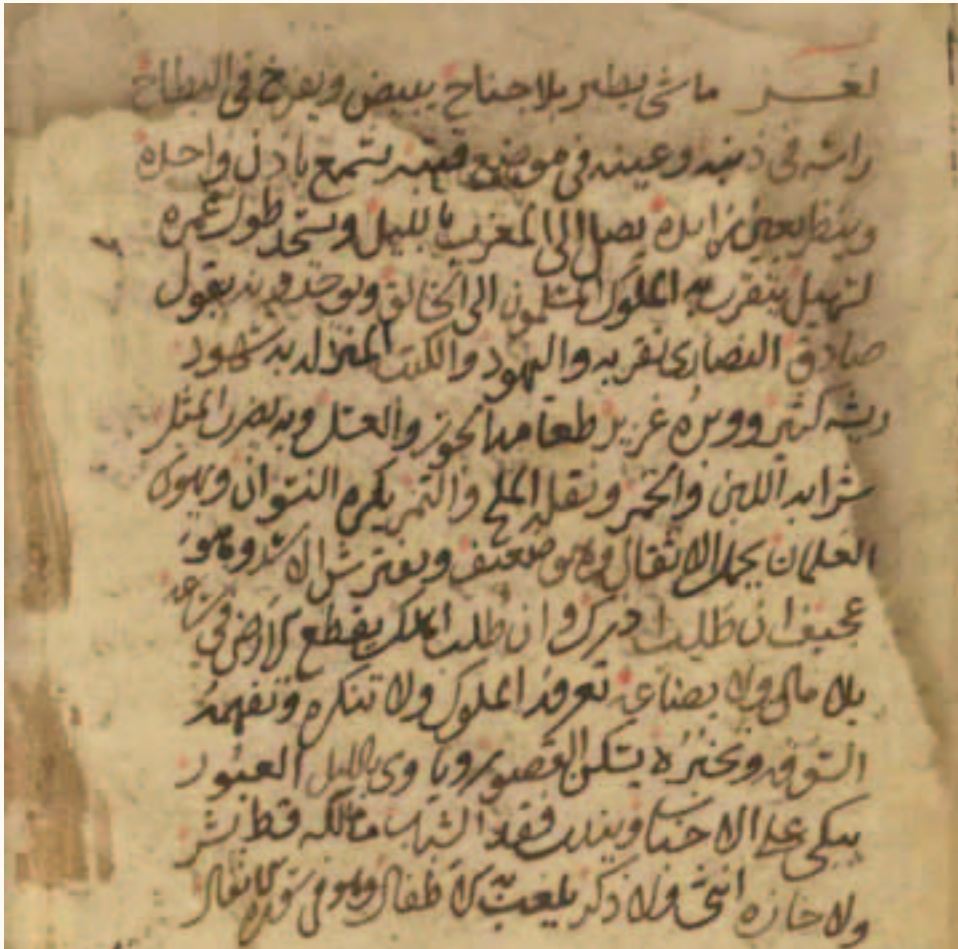 لغز ماشي يطير بلا جناح يبيض ويفرخ في البطاح
راسه في ذنبه وعينه في موضع قتبه يسمع باذن واحده
وينظر بعين زايده يصل الى المغرب بالليل ويستجد طول عمره
لسهيل يتقرب به الملوك المسلمون الى الخالق ويوحدونه بقول
صادق النصارى تقر به واليهود والكتب المنزله به شهود
ريشه كثير ووبره غزير طعامه الجوز والعسل وبه يضرب المثل
شرابه اللبن والخمر ونقله الملح والتمر يكره النسوان ويهوى
الغلمان يحمل الاثقال وهو ضعيف ويفترش الاسد وهو
نحيف ان طلبته ادرك وان طلب الملك يقطع الارض في ساعه
بلا مال ولا بضاعه تعرفه الملوك ولا تنكره وتفهمه
السوقه وتخبره يسكن القصور وياوى بالليل القبور
يبكي على الاحباب ويندب فقد الشباب ما ملكه قط بشر
ولا حازه انثى ولا ذكر يلعب به الاطفال وهو في سورة الانفال